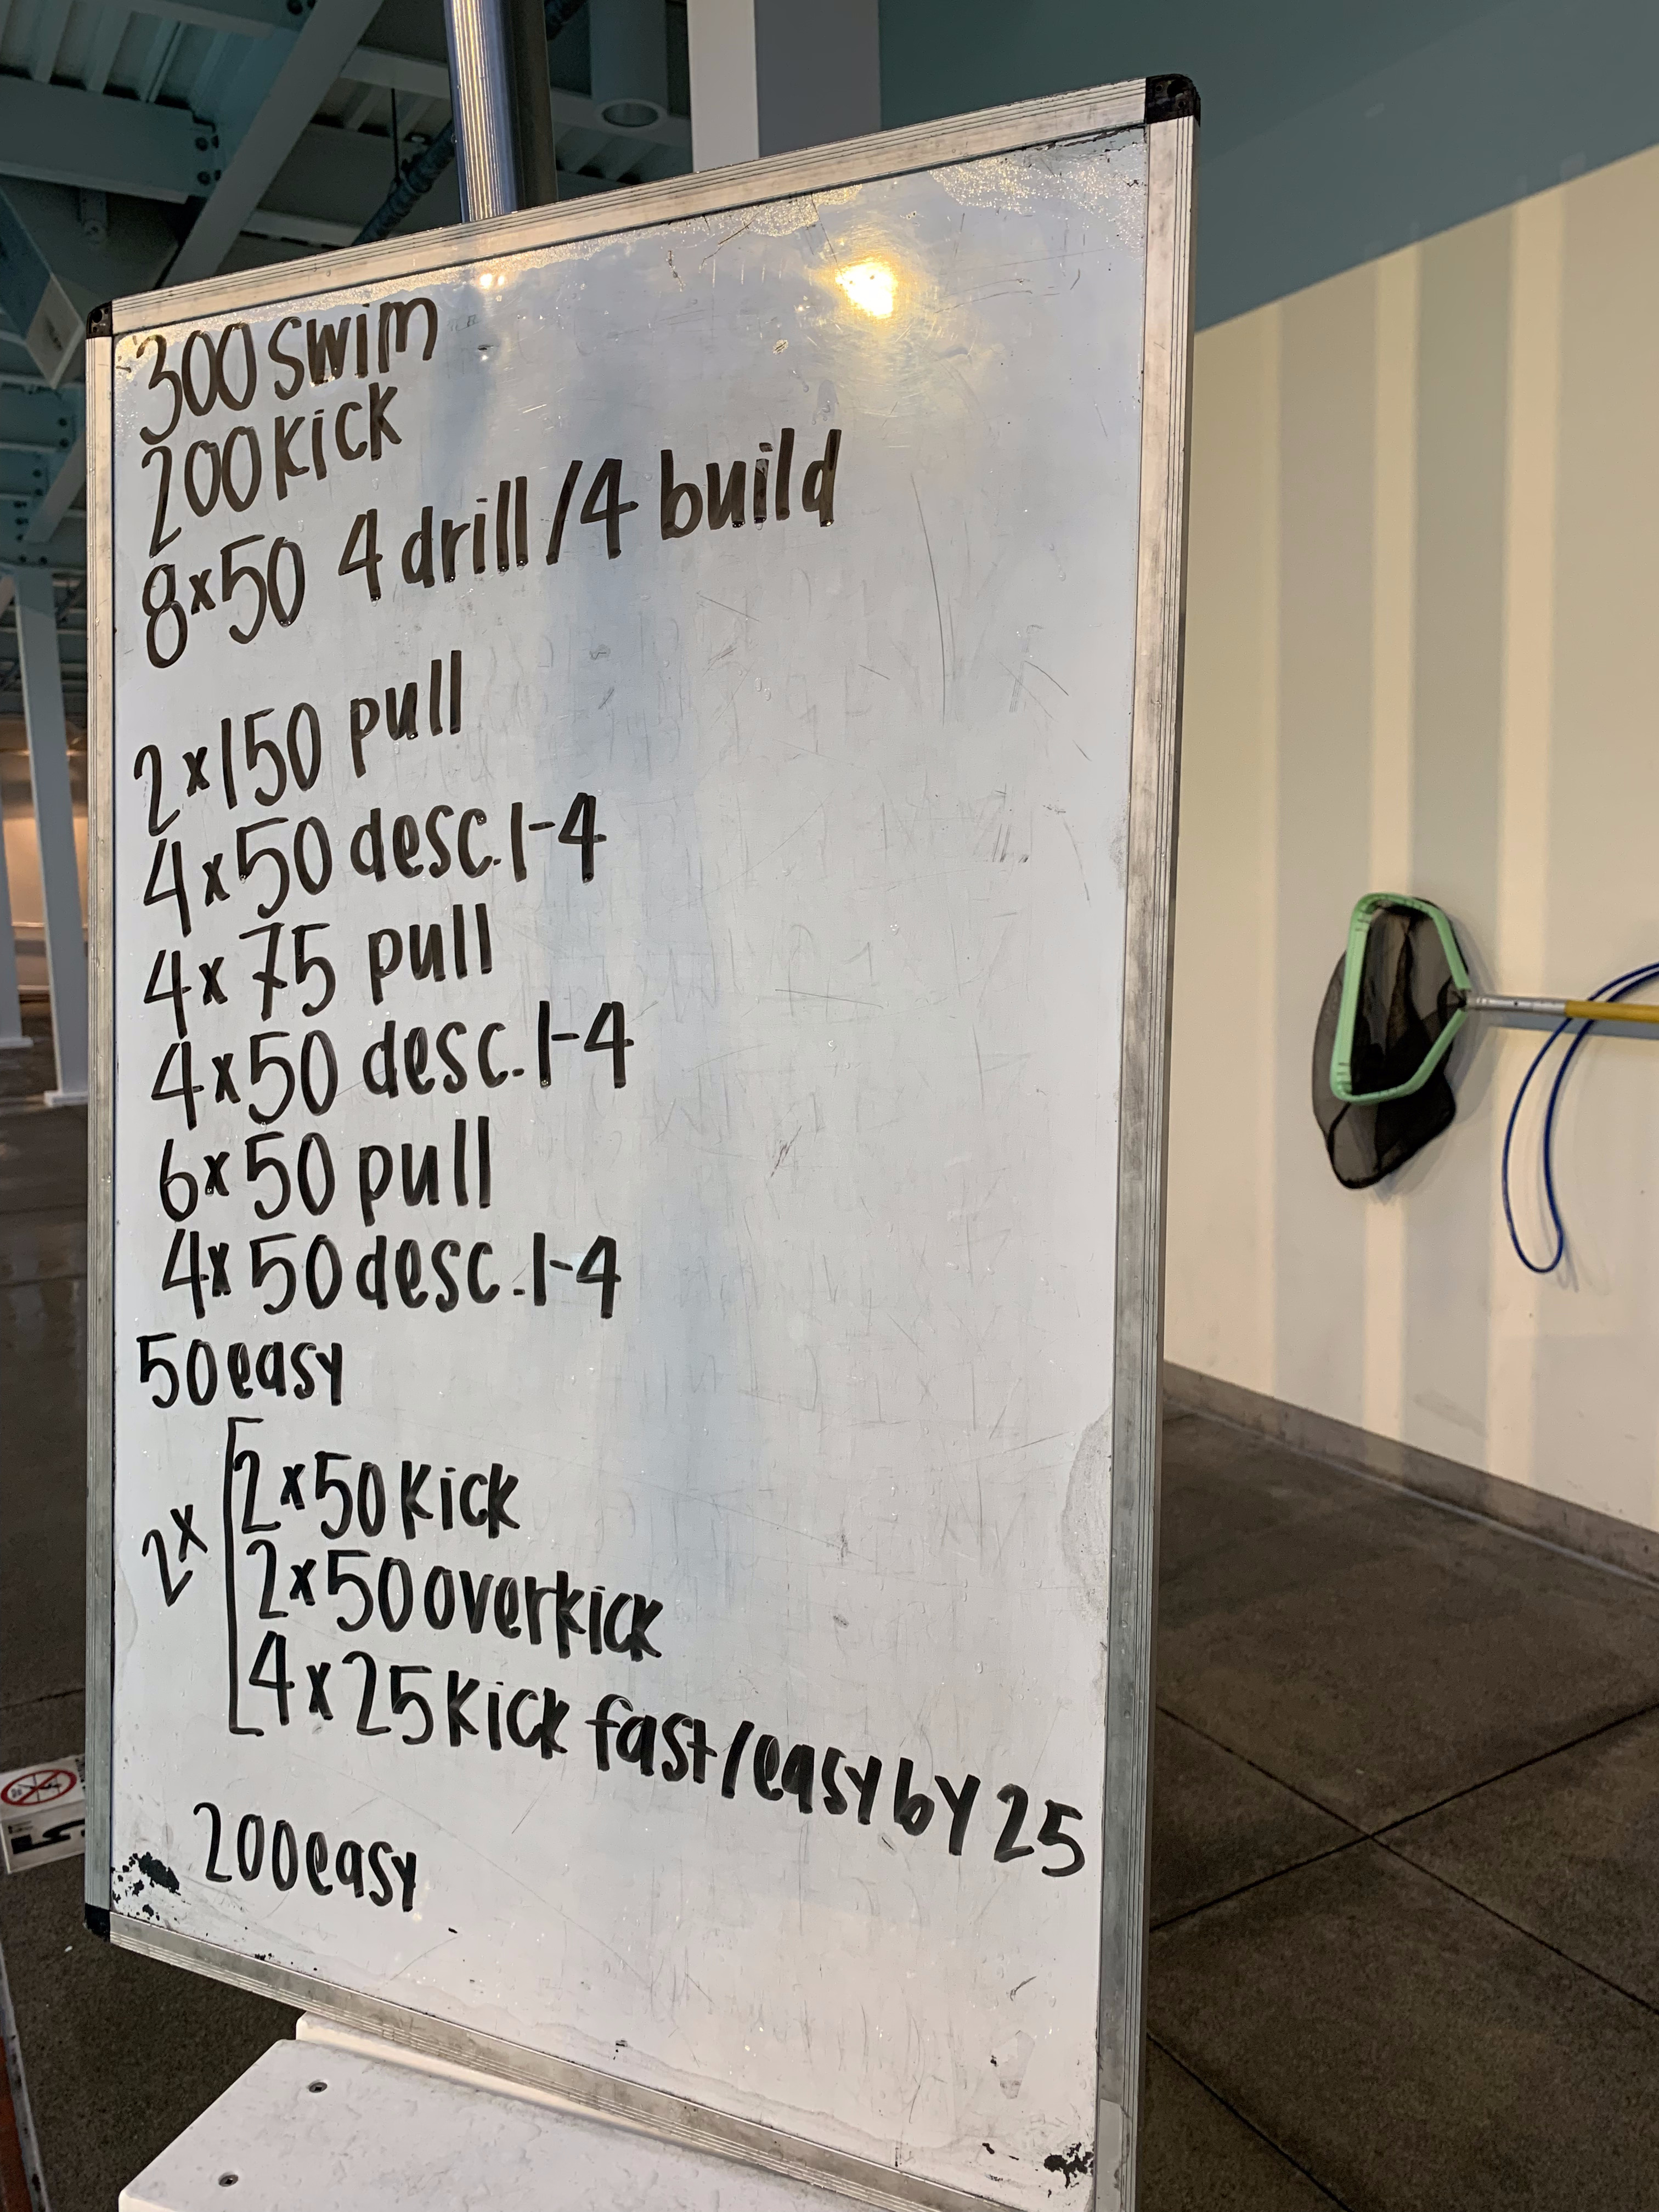 300 swim
200 kick
8x50 4 drill/4 build
2x150 pull
4x50 desc. 1-4
4x75 pull
4x50 desc. 1-4
6x50 pull
4x50 desc. 1-4
50 easy
2x
2x50 kick
2x50 overkick
4x25 kick fast/easy by 25
200 easy